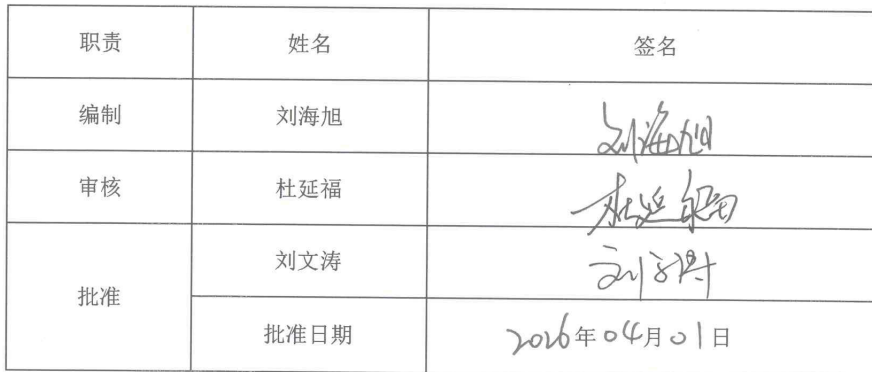 职责 姓名 签名
编制 刘海旭 刘海旭
审核 杜延福 杜延福
批准 刘文涛 刘文涛
批准日期 2026年04月01日